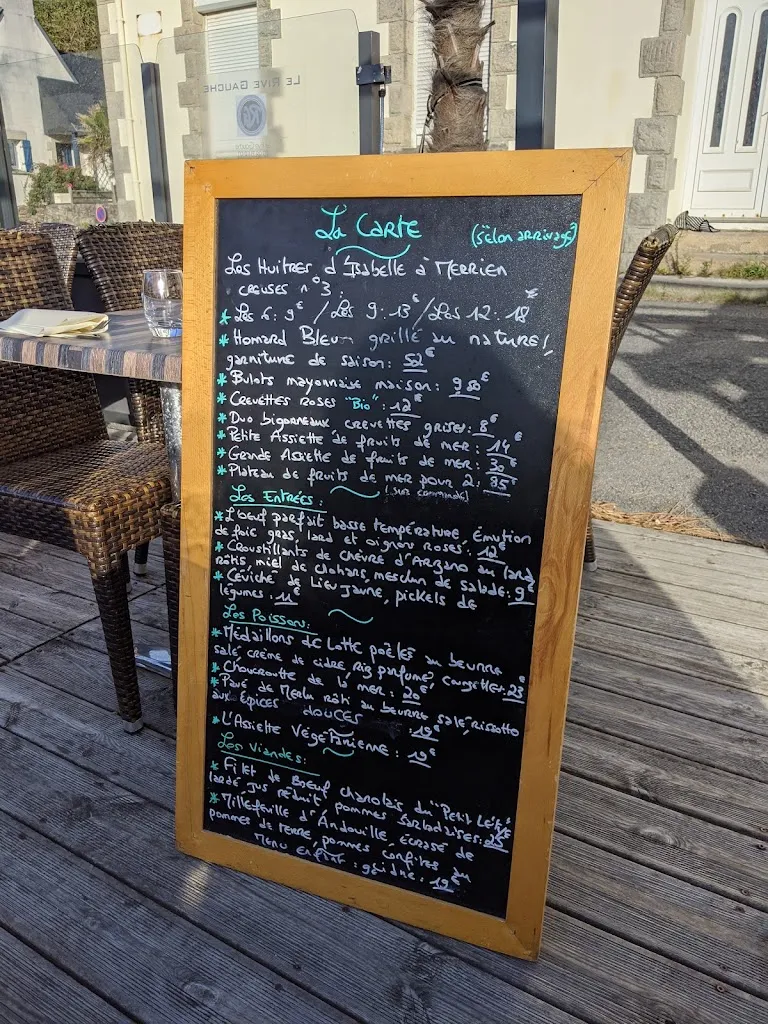 LE RIVE GAUCHE
La CARTE
(selon arrivage)
Les Huitres d'Isabelle à MERRIEN
creuses n°3.
* Les 6: 9€ / Les 9: 13€ / Les 12: 18€
* Homard Bleu grillé au nature!
garniture de saison: 52€
* Bulots mayonnaise maison: 9 50€
* Crevettes roses "Bio": 12€
* Duo bigorneaux crevettes grises: 8€
* Petite Assiette de fruits de mer: 14€
* Grande Assiette de fruits de mer: 30€
* Plateau de fruits de mer pour 2: 85€
(sur commande)
Les Entrées:
* L'oeuf parfait basse température, émution
de foie gras, lard et oignon roses: 12€
* Croustillants de chèvre d'Arzano au lard
rôtis, miel de clohars, mesclun de salade: 9€
* Céviché de Lieu Jaune, pickels de
légumes: 11€
Les Poisson:
* Médaillons de Lotte poêlés au beurre
salé, crème de cidre, Riz parfumé, courgettes: 23€
* Choucroute de la mer: 20€
* Pavé de Merlu rôti au beurre salé, rissotto
aux épices douces: 19€
* L'Assiette Végétarienne: 19€
Les Viandes:
* Filet de Boeuf charolais du "Petit
lardé, jus réduit, pommes sarladaises: 25€
* Millefeuille d'Andouille, écrasé de
pommes de terre, pommes confites au
cidre: 19€
Menu enfant: